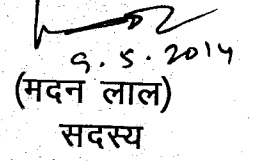 9.5.2014
(मदन लाल)
सदस्य